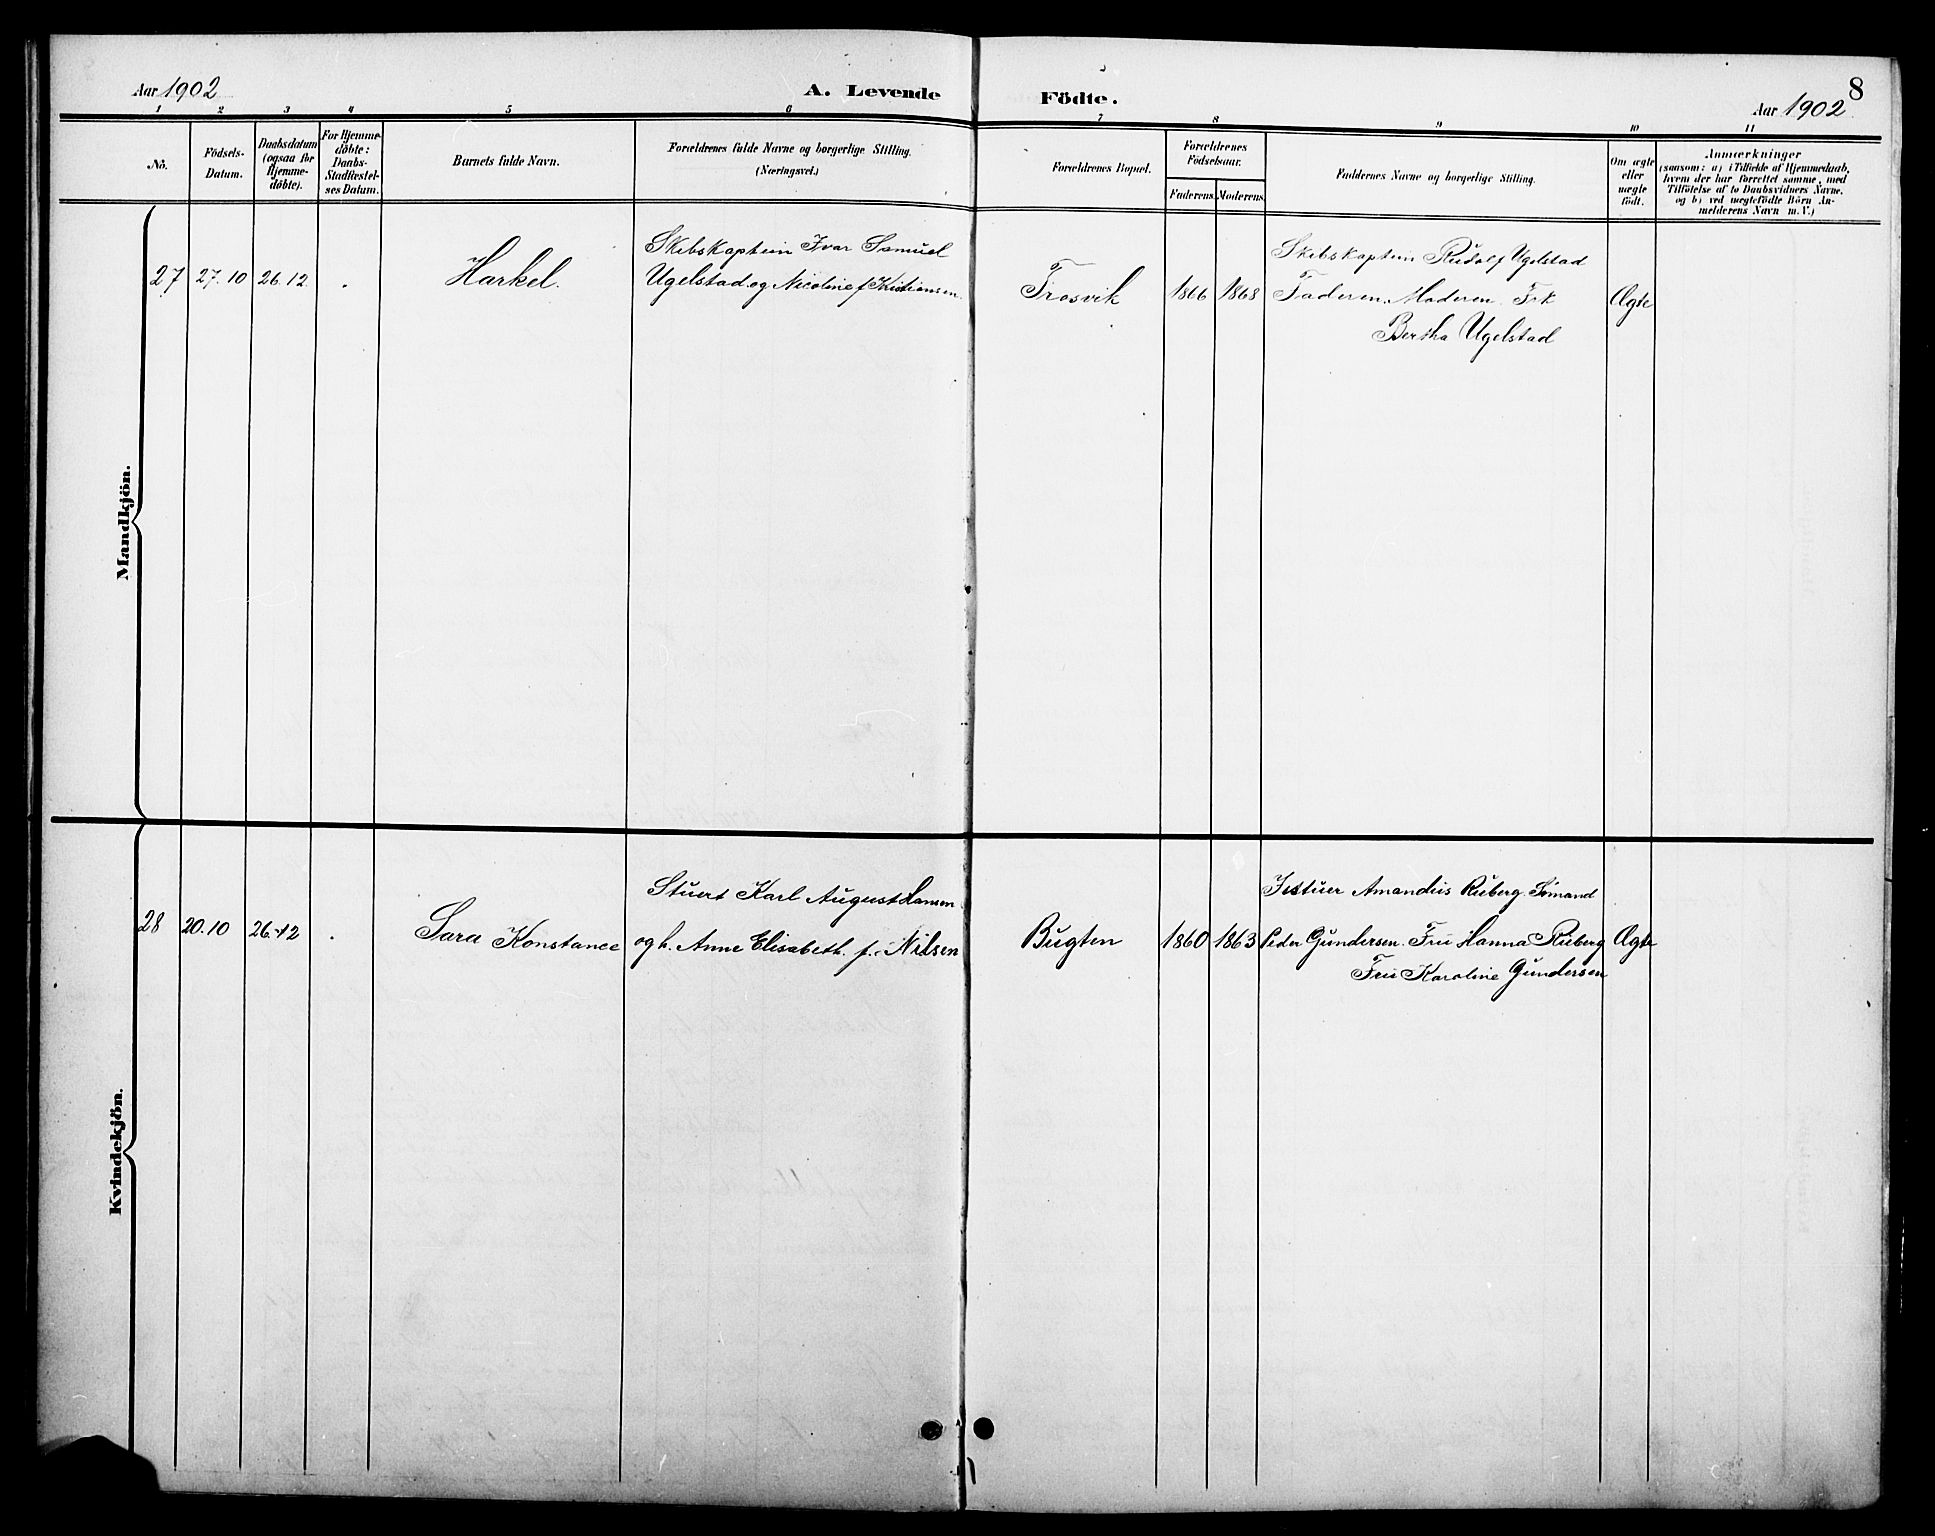 Aar 1902
A. Levende
Födte.
8
Aar 1902.
1 2 3 4 5 6 7 8 9 10 11
No.
Födsels-
Datum.
Daabsdatum
(ogsaa for
Hjemme-
döbte).
For Hjemme-
döbte:
Daabs-
Stadfæstel-
ses Datum.
Barnets fulde Navn.
Forældrenes fulde Navne og borgerlige Stilling.
(Næringsvei.)
Forældrenes Bopæl.
Forældrenes
Födselsaar.
Faderens. Moderens.
Faddernes Navne og borgerlige Stilling.
Om ægte
eller
uægte
födt.
Anmærkninger
(saasom: a) i Tilfælde af Hjemmedaab,
hvem der har forrettet samme, med
Tilföielse af to Daabsvidners Navne,
og b) ved uægtefödte Börn An-
melderens Navn m. V.)
Mandkjön.
27 27.10 26.12 .
Harkel.
Skibskaptein Ivar Samuel
Ugelstad og Nicoline f Kristiansen.
Trosvik
1866 1868
Skibskaptein Rudolf Ugelstad
Faderen. Moderen. Frk
Bertha Ugelstad
Ægte
Kvindekjön.
28 20.10 26.12 .
Sara Konstance
Stuert Karl August Hansen
og h. Anne Elisabeth. f. Nilsen
Bugten
1860 1863
Amandus Rieberg. Sömand
Peder Gundersen. Fru Hanna Rieberg
Fru Karoline Gundersen
Ægte